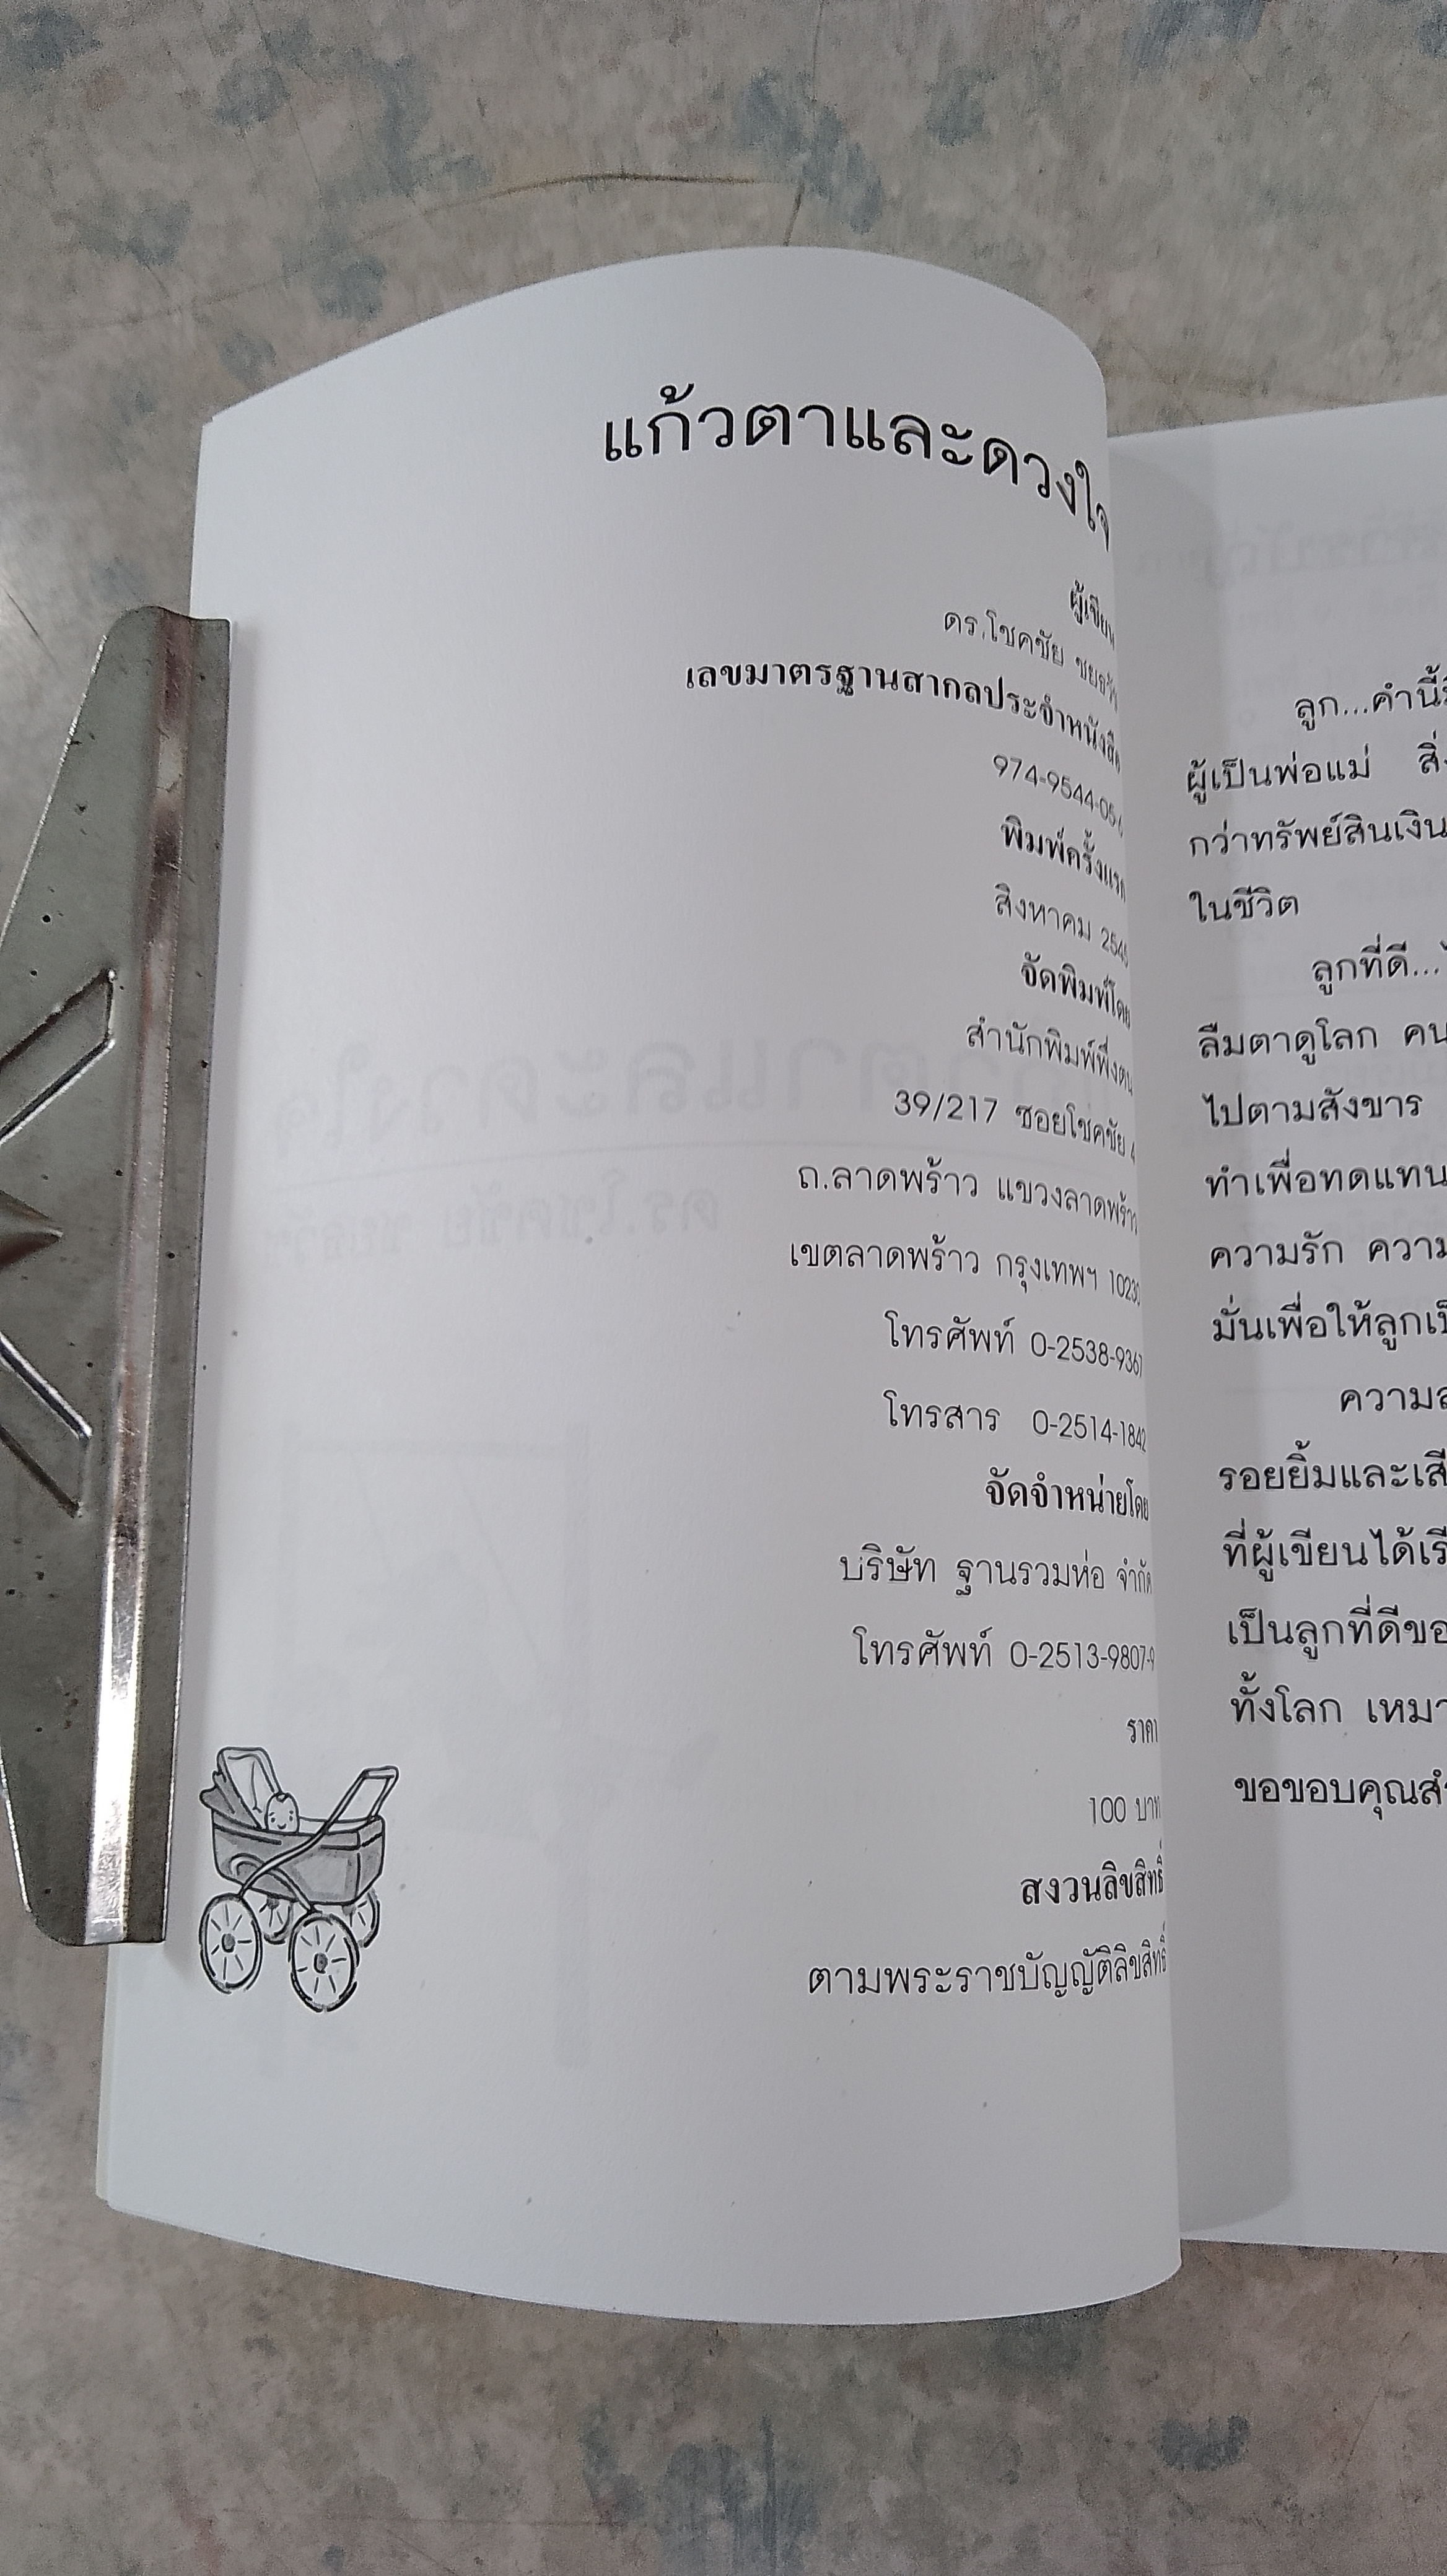 แก้วตาและดวงใจ
ผู้เขียน
ดร.โชคชัย
เลขมาตรฐานสากลประจำหนังสือ
974-9544-05-
พิมพ์ครั้งแรก
สิงหาคม
จัดพิมพ์โดย
สำนักพิมพ์พึ่งตน
39/217 ซอยโชคชัย 4
ถ.ลาดพร้าว แขวงลาดพร้าว
เขตลาดพร้าว กรุงเทพฯ 10230
โทรศัพท์ 0-2538-9367
โทรสาร 0-2514-1842
จัดจำหน่ายโดย
บริษัท ฐานรวมห่อ จำกัด
โทรศัพท์ 0-2513-9807-9
ราคา
100 บาท
สงวนลิขสิทธิ์
ตามพระราชบัญญัติลิขสิทธิ์
ลูก...คำนี้
ผู้เป็นพ่อแม่
กว่าทรัพย์สินเงิน
ในชีวิต
ลูกที่ดี...
ลืมตาดูโลก คน
ไปตามสังขาร
ทำเพื่อทดแทน
ความรัก ความ
มั่นเพื่อให้ลูก
ความ
รอยยิ้มและ
ที่ผู้เขียนได้
เป็นลูกที่ดี
ทั้งโลก
ขอขอบคุณ